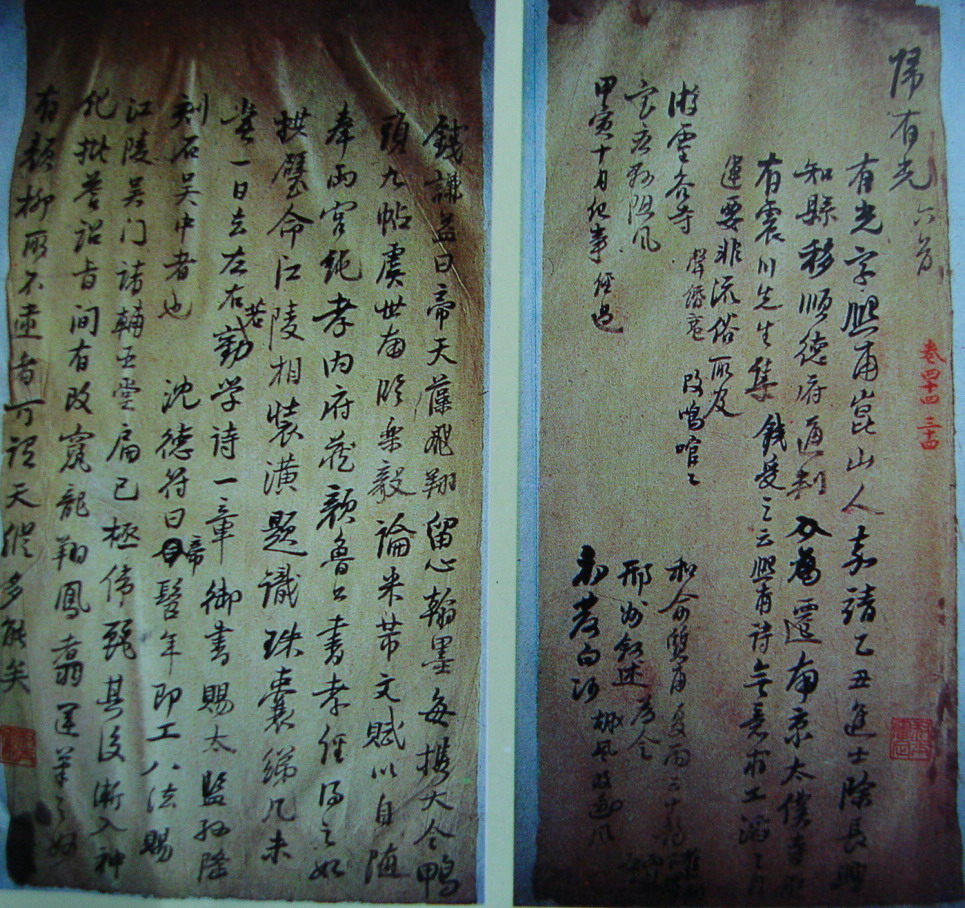 歸有光 六首
卷四十四
有光字熙甫崑山人嘉靖乙丑進士除長興
知縣移順德府通判入為遷南京太僕寺丞
有震川先生集 錢受之云熙甫詩無意求工滔滔自
運要非流俗所及
游靈谷寺
阻風
甲寅十月紀事 經過
邢州敘述
初發白河
錢謙益曰帝天藻飛翔留心翰墨每攜大令鴨
頭丸帖虞世南臨樂毅論米芾文賦以自隨
奉兩宮純孝內府藏顏魯公書孝經得之如
拱璧命江陵相裝潢題識珠囊綈几未
嘗一日去左右若勤學詩一章御書賜太監孫隆
刻石吳中者也
沈德符曰帝髫年即工八法賜
江陵吳門諸輔五堂扁已極偉麗其後漸入神
化批答詔旨間有改竄龍翔鳳翥運筆之妙
有顏柳所不逮者可謂天縱多能矣